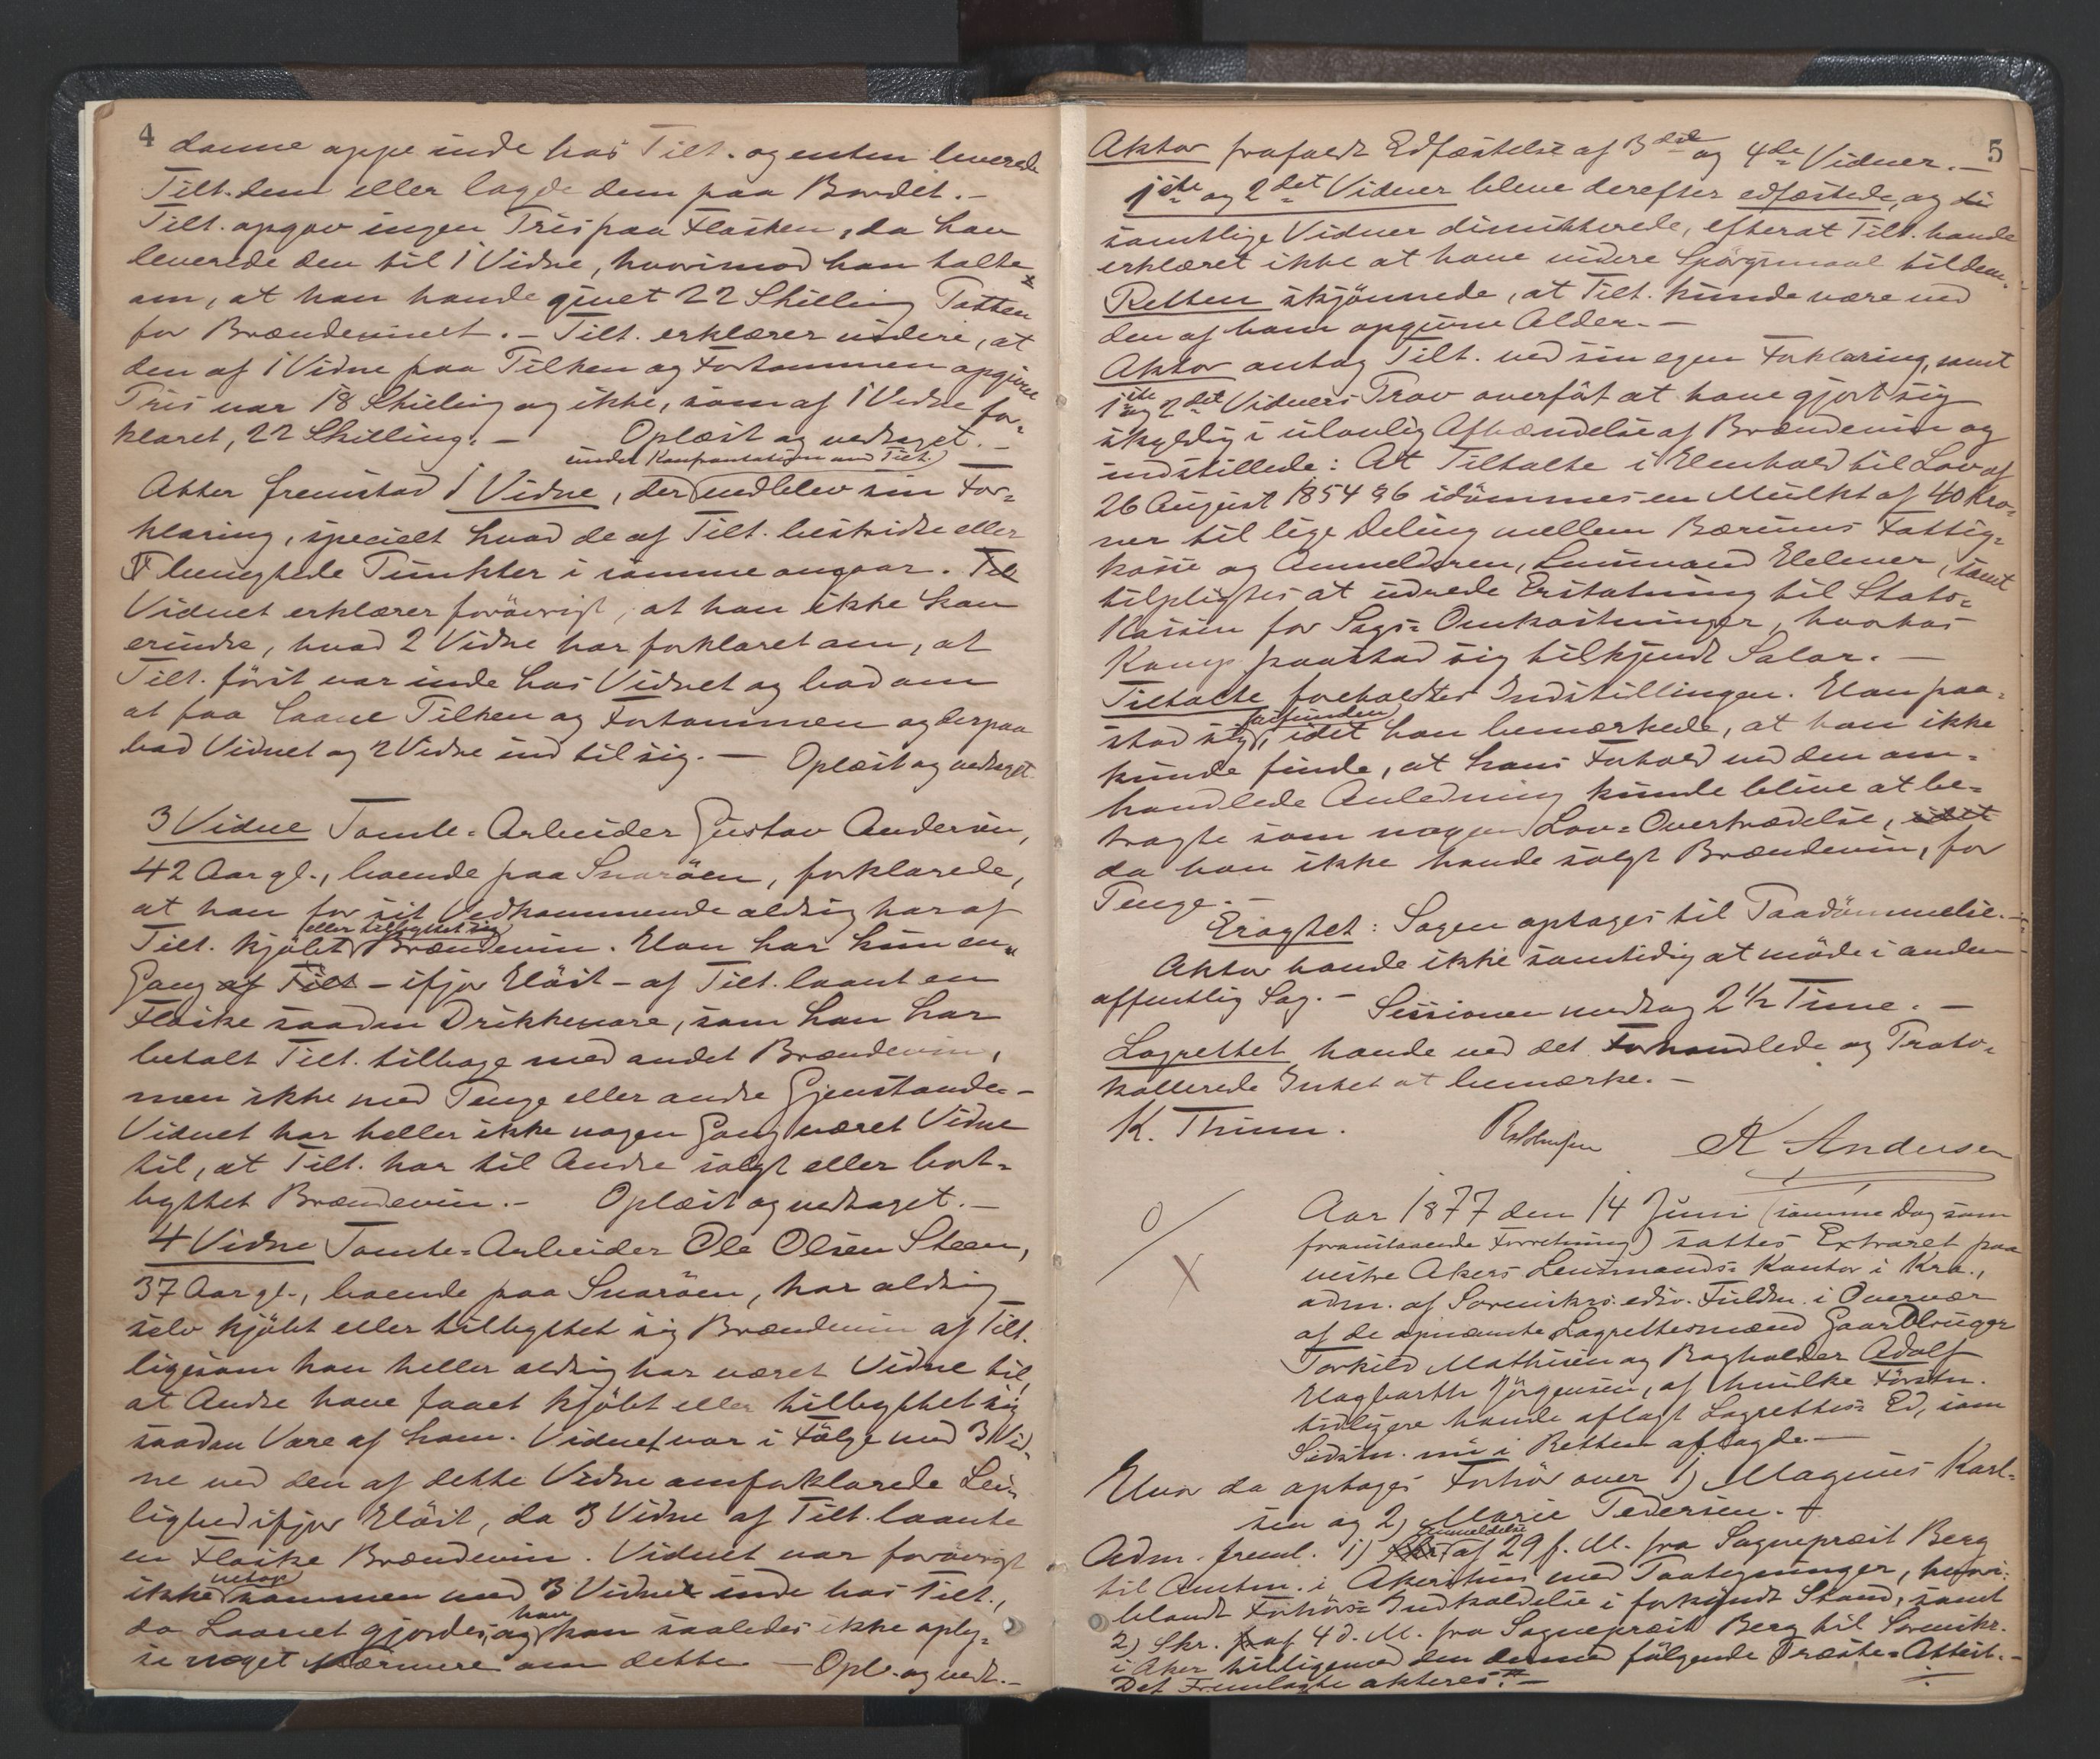 4
denne oppe inde hos Tilt. og enten leverede
Tilt. dem eller lagde dem paa Bordet.-
Tilt. opgav ingen Pris paa Flasken, da han
leverede den til 1 Vidne, hvorimod han talte
om, at han havde givet 22 Skilling Potten
for Brændevinet.- Tilt. erklærer videre, at
den af 1 Vidne paa Pilken og Fortommen opgivne
Pris var 18 Skilling og ikke, som af 1 Vidne for-
klaret, 22 Skilling.- Oplæst og vedtaget.-
under Konfrontation med Tilt.
Atter fremstod 1 Vidne, der vedblev sin For-
klaring, specielt hvad de af Tilt. bestridte eller
benegtede Punkter i samme angaar. Tilt
Vidnet erklærer forøvrigt, at han ikke kan
erindre, hvad 2 Vidne har forklaret om, at
Tilt. først var inde hos Vidnet og bad om
at faa laane Pilken og Fortommen og derpaa
bad Vidnet og 2 Vidne ind til sig.- Oplæst og vedtaget.
3 Vidne Tomte-Arbeider Gustav Andersen,
42 Aar gl., boende paa Snarøen, forklarede,
at han for sit Vedkommende aldrig har af
eller tilbyttet sig
Tilt. kjøbt Brændevin. Han har kun en
Gang af Tilt - ifjor Høst - af Tilt. laant en
Flaske saadan Drikkevare, som han har
betalt Tilt. tilbage med andet Brændevin,
men ikke med Penge eller andre Gjenstande.-
Vidnet har heller ikke nogen Gang været Vidne
til, at Tilt. har til Andre solgt eller bort-
byttet Brændevin.- Oplæst og vedtaget.-
4 Vidne Tomte-Arbeider Ole Olsen Steen,
37 Aar gl., boende paa Snarøen, har aldrig
selv kjøbt eller tilbyttet sig Brændevin af Tilt.
ligesom han heller aldrig har været Vidne til,
at Andre have faaet kjøbt eller tilbyttet sig
saadan Vare af ham. Vidnet var i Følge med 3 Vid-
ne ved den af dette Vidne omforklarede Lei-
lighed ifjor Høst, da 3 Vidne af Tilt. laante
en Flaske Brændevin. Vidnet var forøvrigt
netop
ikke sammen med 3 Vidne inde hos Tilt.,
han
da Laanet gjordes, og kan saaledes ikke oply-
se noget Nærmere om dette.- Opl. og vedt.-
5
Aktor frafaldt Edfæstelse af 3die og 4de Vidner.-
1ste og 2det Vidner bleve derefter edfæstede, og de
samtlige Vidner dimitterede, efterat Tilt. havde
erklæret ikke at have videre Spörgsmaal til dem.
Retten skjønnede, at Tilt. kunde være ved
den af ham opgivne Alder.-
Aktor antog Tilt. ved sin egen Forklaring, samt
1ste og 2det Vidners Prov overført at have gjort sig
skyldig i ulovlig Afhændelse af Brændevin og
indstillede: At Tiltalte i Henhold til Lov af
26 August 1854 § 6 idømmes en Mulkt af 40 Kro-
ner til lige Deling mellem Bærums Fattig-
kasse og Anmelderen, Lensmand Helmer, samt
tilpligtes at udrede Erstatning til Stats-
kassen for Sags-Omkostninger, hvorhos
Komp. paastod sig tilkjendt Salar.-
Tiltalte foreholdtes Indstillingen. Han paa-
frifunden
stod sig, idet han bemærkede, at han ikke
kunde finde, at hans Forhold ved den om-
handlede Anledning kunde blive at be-
tragte som nogen Lov-Overtrædelse, idet
da han ikke havde solgt Brændevin, for
Penge.-
Eragtet: Sagen optages til Paadømmelse.-
Aktor havde ikke samtidig at møde i anden
offentlig Sag.- Sessionen medtog 2 1/2 Time.-
Lagrettet havde ved det Forhandlede og Proto-
kollerede Intet at bemærke.-
K. Thinn. A Andersen
Aar 1877 den 14 Juni (samme Dag som
foranstaaende Forretning) sattes Extraret paa
vestre Akers Lensmands-Kontor i Kra.,
adm. af Sorenskrs. edsv. Fuldm. i Overvær
af de opnævnte Lagrettesmænd Gaardbruger
Torkild Mathisen og Bogholder Adolf
Hagbarth Jörgensen, af hvilke Förstn.
tidligere havde aflagt Lagrettes-Ed, som
Sidstn. nu i Retten aflagde.-
Hvor da optoges Forhör over 1) Magnus Karl-
sen og 2) Marie Pedersen.-
Anmeldelse
Adm. freml. 1) Skr. af 29 f. M. fra Sognepræst Berg
til Amtm. i Akershus med Paategninger, hvori-
blandt Forhörs-Indkaldelse i forkyndt Stand, samt
2) Skr. af 4 d. M. fra Sognepræst Berg til Sorenskr.
i Aker tilligemed den dermed fölgende Præste-Attest.-
Det Fremlagte akteres.-